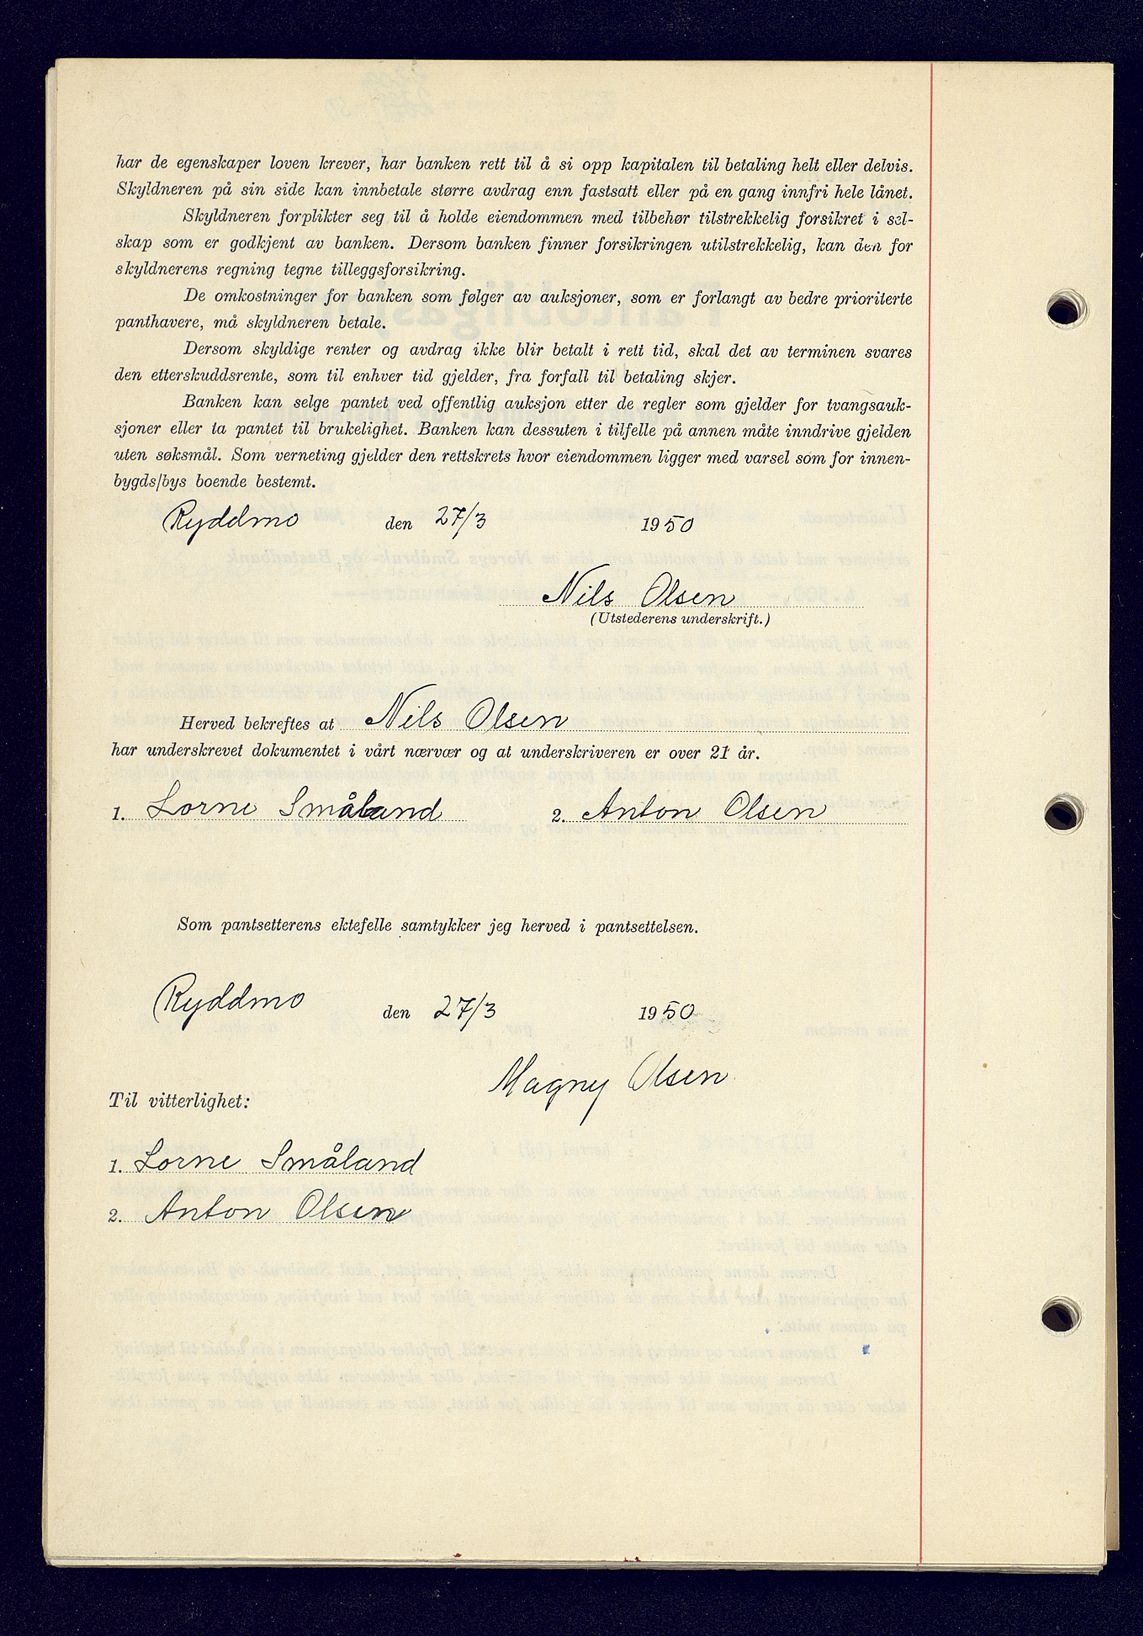 har de egenskaper loven krever, har banken rett til å si opp kapitalen til betaling helt eller delvis.
Skyldneren på sin side kan innbetale større avdrag enn fastsatt eller på en gang innfri hele lånet.
Skyldneren forplikter seg til å holde eiendommen med tilbehør tilstrekkelig forsikret i sel-
skap som er godkjent av banken. Dersom banken finner forsikringen utilstrekkelig, kan den for
skyldnerens regning tegne tilleggsforsikring.
De omkostninger for banken som følger av auksjoner, som er forlangt av bedre prioriterte
panthavere, må skyldneren betale.
Dersom skyldige renter og avdrag ikke blir betalt i rett tid, skal det av terminen svares
den etterskuddsrente, som til enhver tid gjelder, fra forfall til betaling skjer.
Banken kan selge pantet ved offentlig auksjon etter de regler som gjelder for tvangsauk-
sjoner eller ta pantet til brukelighet. Banken kan dessuten i tilfelle på annen måte inndrive gjelden
uten søksmål. Som verneting gjelder den rettskrets hvor eiendommen ligger med varsel som for innen-
bygds/bys boende bestemt.
Ryddmo den 27/3 1950
Nils Olsen
(Utstederens underskrift.)
Herved bekreftes at Nils Olsen
har underskrevet dokumentet i vårt nærvær og at underskriveren er over 21 år.
1. Lorne Småland 2. Anton Olsen
Som pantsetterens ektefelle samtykker jeg herved i pantsettelsen.
Ryddmo den 27/3 1950
Magny Olsen
Til vitterlighet:
1. Lorne Småland
2. Anton Olsen